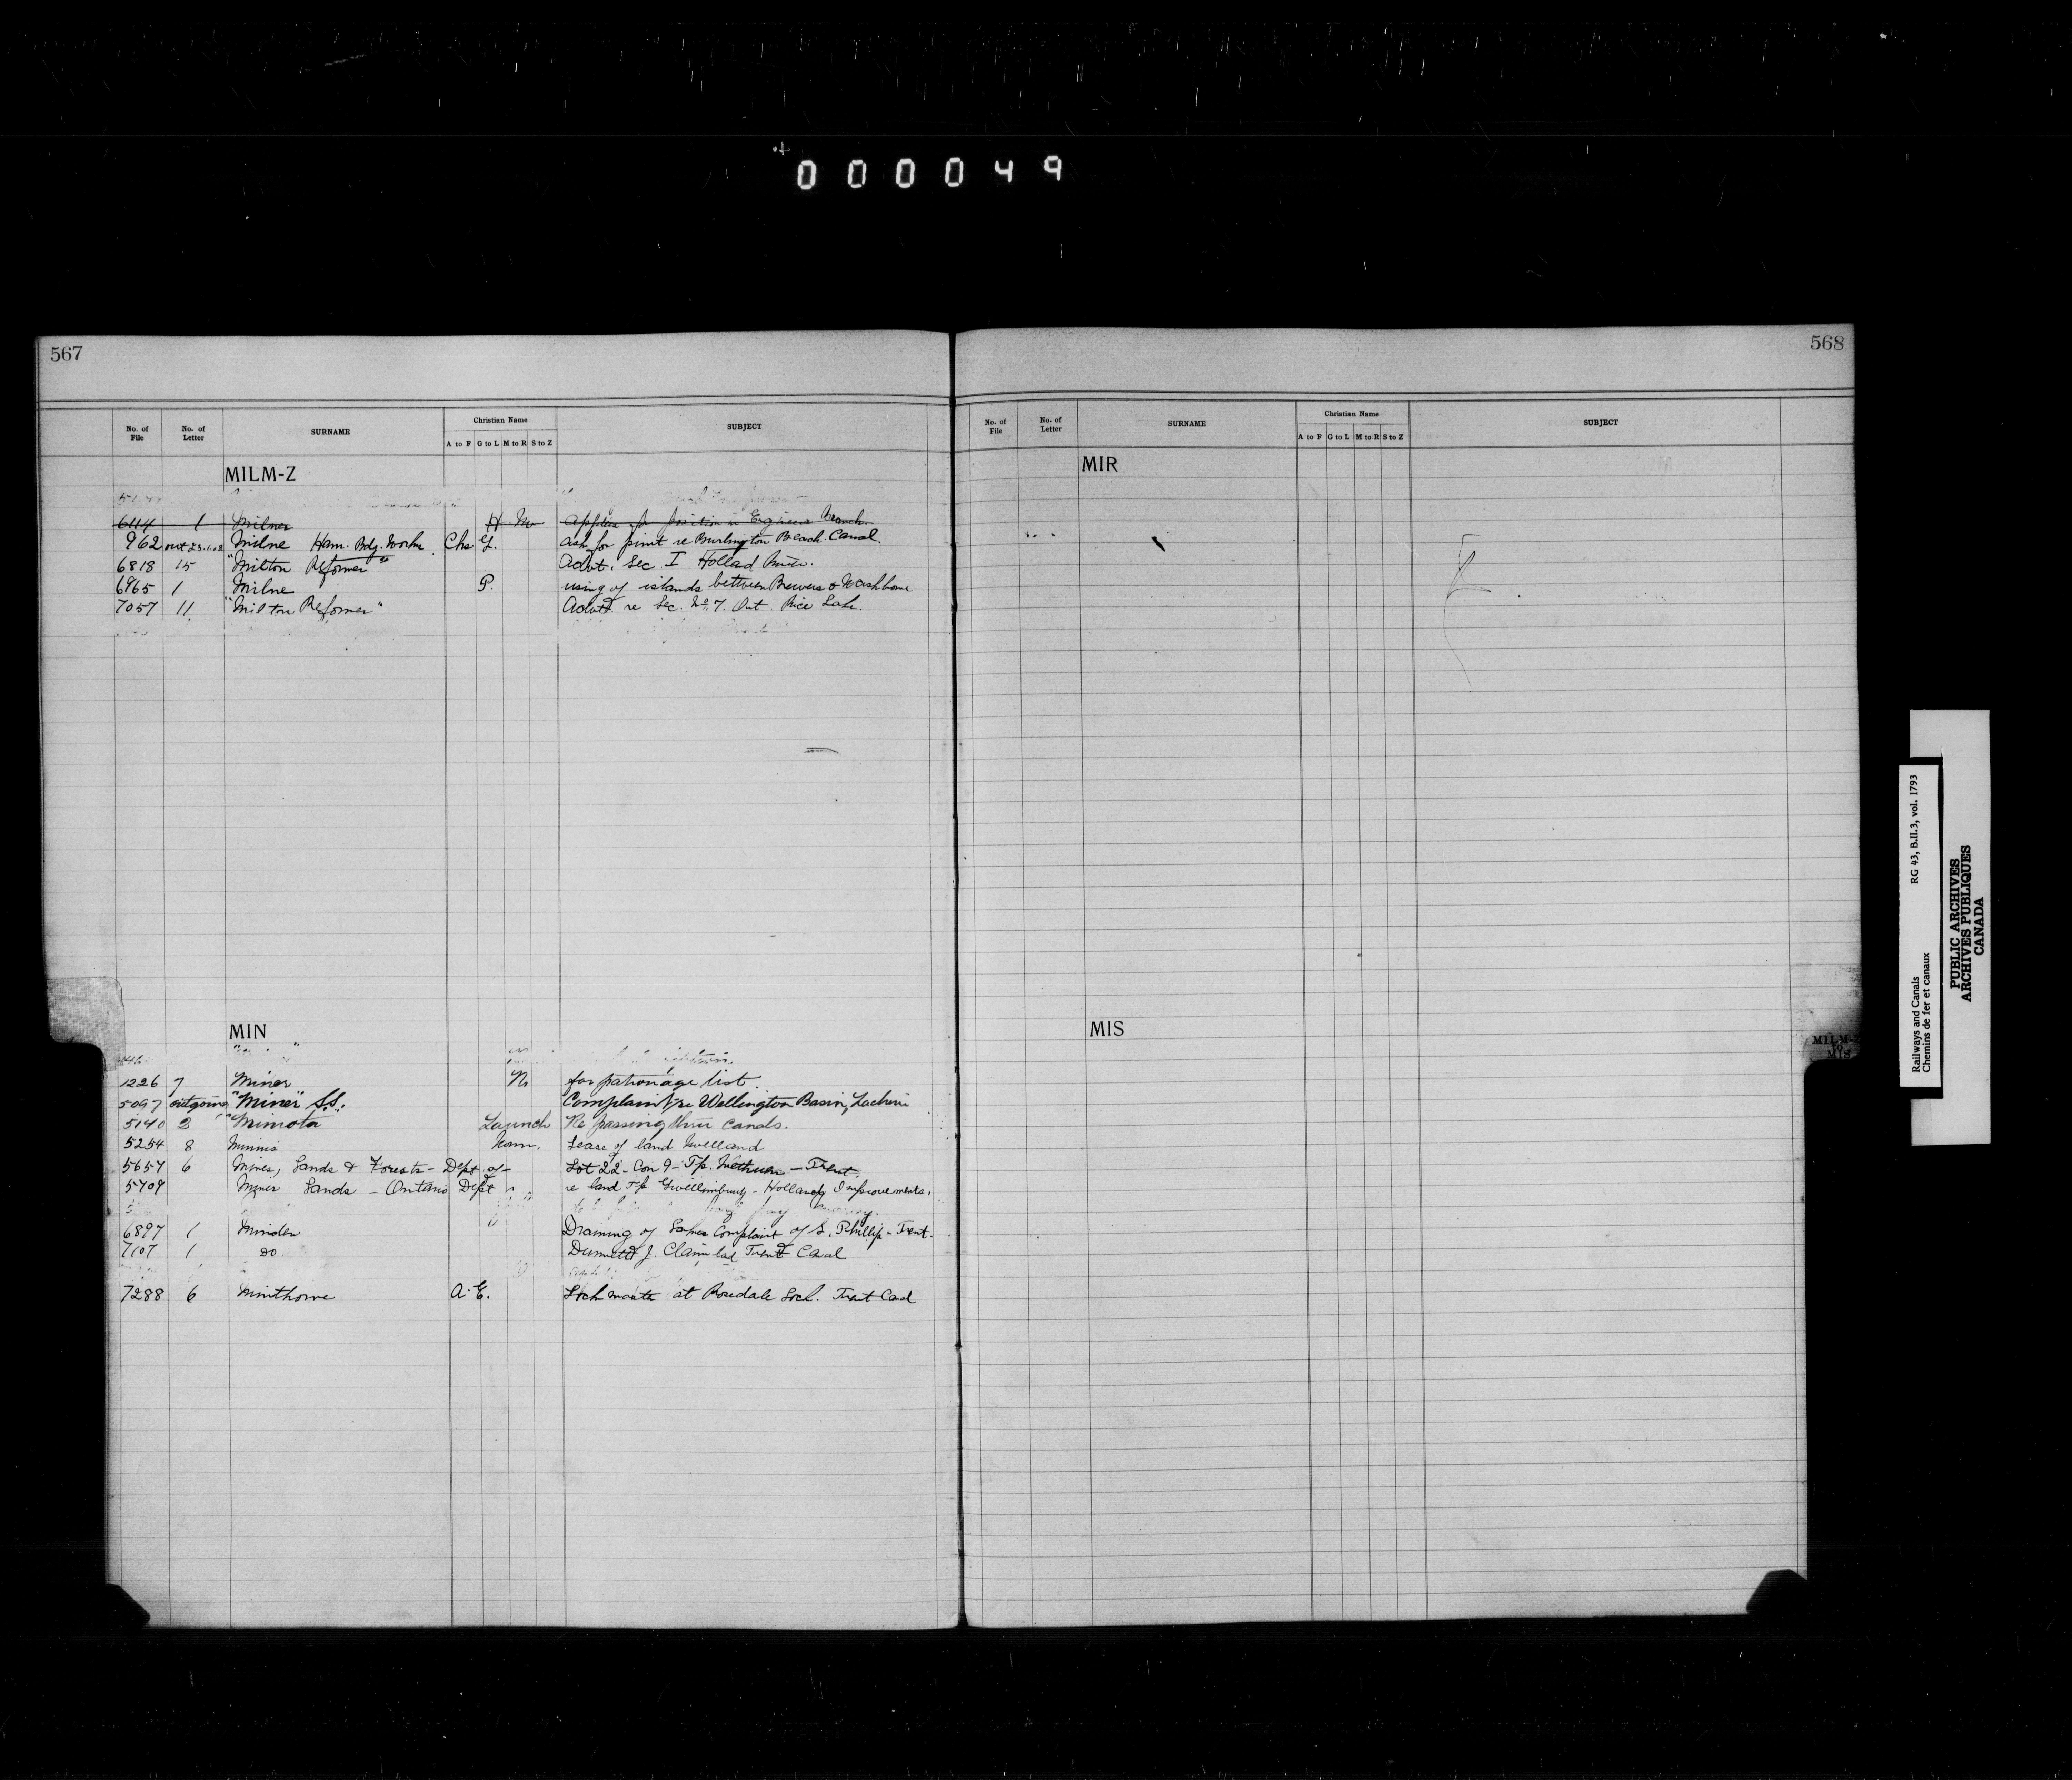 000049
567
No. of File No. of Letter SURNAME Christian Name SUBJECT
A to F G to L M to R S to Z
MILM-Z
6114 1 Milner H. Appltn for position in Engineers Branch
962 out Milne Ham. Bdg. Works Chs G. Ask for print re Burlington Beach Canal.
6818 15 "Milton Reformer" Advt. Sec. I Holland
6965 1 Milne P. using of islands between Brewers & Washburn
7057 11 "Milton Reformer" Advt. re Sec. No. 7 Ont. Rice Lake.
MIN
1226 7 Miner N for patronage list.
5097 outgoing "Miner" S.S. Complaint re Wellington Basin, Lachine
5140 2 "Mimota Launch Re passing thru canals.
5254 8 Minnis Lease of land Welland
5657 6 Mines, Lands & Forests - Dept. of - Lot 22 - Con 9 - Tp. Methuen - Trent
5709 Mines Lands - Ontario Dept re land Tp Gwillimbury - Holland Improvements.
6897 1 Minden Draining of Complaint of S. Phillip - Trent.
7107 1 do Claim Trent Canal
7288 6 Minthorne A. E. Lockmaster at Rosedale Lock. Trent Canal
568
No. of File No. of Letter SURNAME Christian Name SUBJECT
A to F G to L M to R S to Z
MIR
MIS
MILM-Z
to
MIS
Railways and Canals RG 43, B.II.3, vol. 1793
Chemins de fer et canaux
PUBLIC ARCHIVES
ARCHIVES PUBLIQUES
CANADA